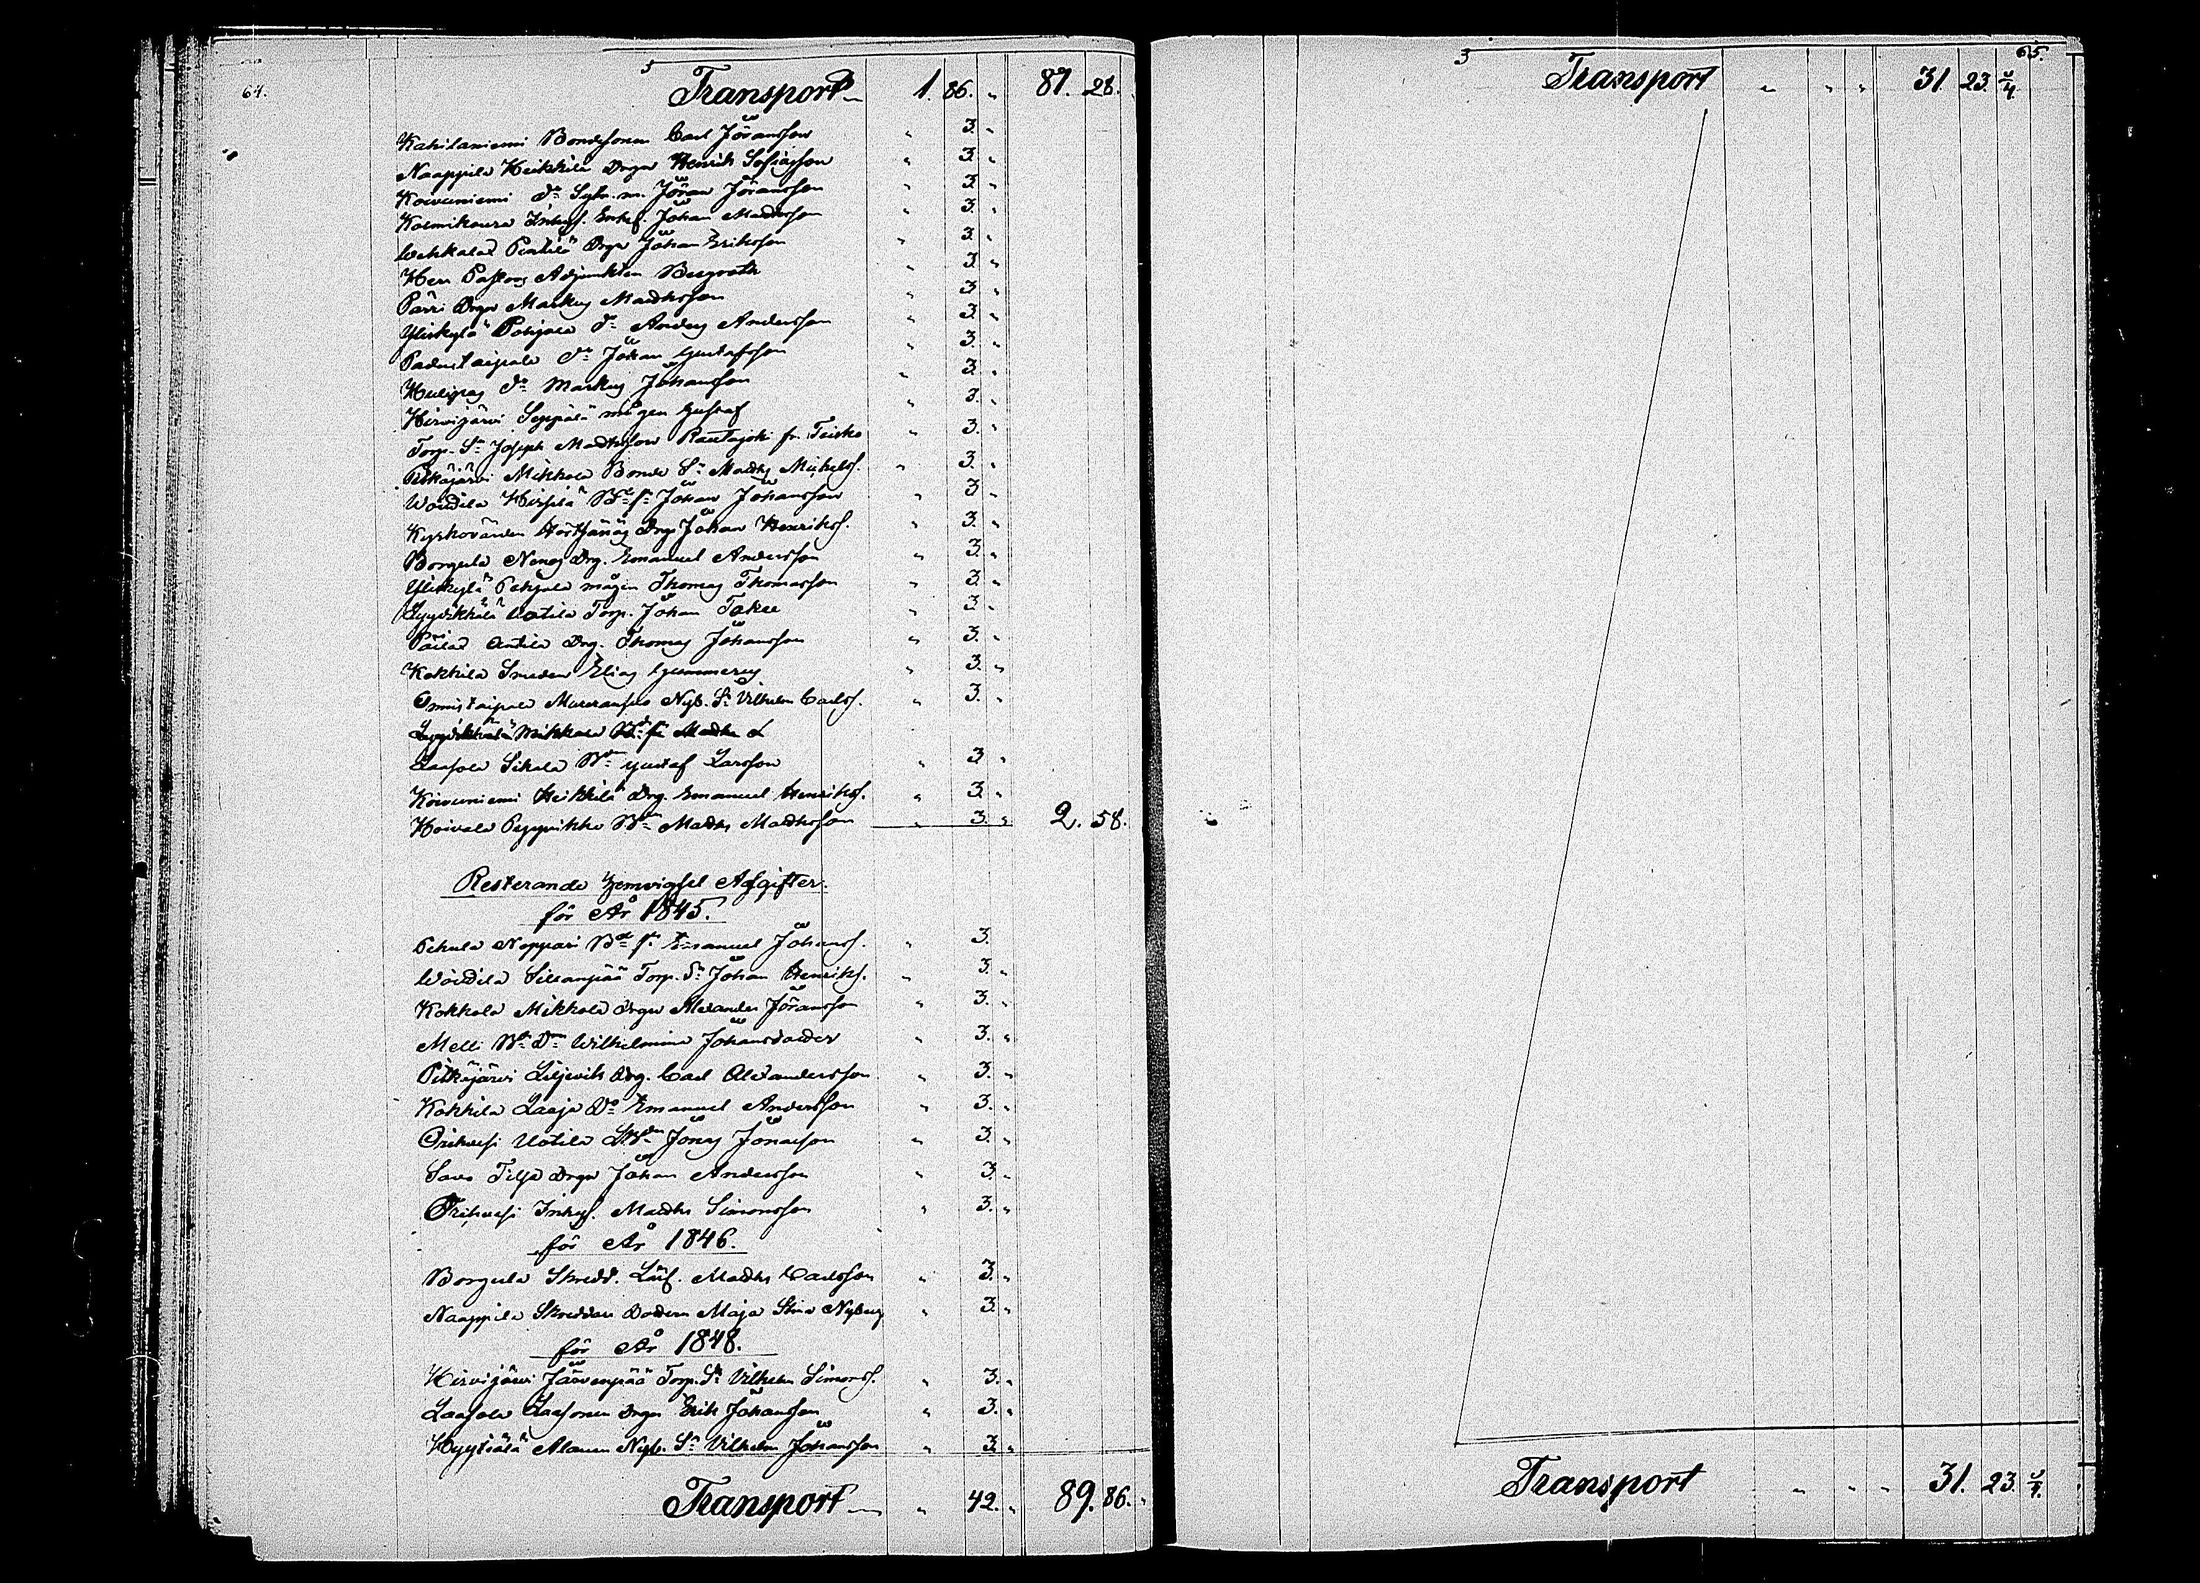 64.
Transport 1. 86. " 87. 28.
Kahilaniemi Bondesonen Carl Jöransson " 3. "
Naappila Heikkilä Drgn Henrik Sofiasson " 3. "
Koivuniemi do Sytn. m. Jöran Jöransson " 3. "
Inhys. Enkl. Johan Madtsson " 3. "
Wehkalax Penttilä Drgn Johan Eriksson " 3. "
Herr Pastors Adjunkten Bergroth " 3. "
Pärri Drgn Markus Madtsson " 3. "
Yliskylä Pohjala do Anders Andersson " 3. "
Padustaipale do Johan Gustafsson " 3. "
do Markus Johansson " 3. "
Hirvijärvi Seppälä mågen Gustaf " 3. "
Torp. Sn Joseph Madtsson Rautajoki fr. Teisko " 3. "
Pitkäjärvi Mikkola Bonde Sn Madts Michelss. " 3. "
Woitila Hirsilä Bde sn Johan Johansson " 3. "
Kyrkovärden Drg. Johan Henrikss. " 3. "
Borgula Drg. Emanuel Andersson " 3. "
Yliskylä Pohjala mågen Thomas Thomasson " 3. "
Lyydikkälä Uotila Torp. Johan " 3. "
Päilax Anttila Drg. Thomas Johansson " 3. "
Kokkila Smeden Elias Gummerus " 3. "
Onnistaipale Nyb. Sn Vilhelm Carlss. " 3. "
Lyydikkälä Mikkola Bde sn Madts
Laasola Sikala Bdn Gustaf Larsson " 3. "
Koivuniemi Heikkilä Drg. Emanuel Henrikss. " 3. "
Hoivala Pyynikki Bdn Madts Madtsson " 3. " 2. 58.
Resterande Hemvigsel Afgifter.
för År 1845.
Pehula Noppari Bde sn Emanuel Johanss. " 3.
Woitila Sillanpää Torp. Sn Johan Henrikss. " 3. "
Kokkola Mikkola Drgn Alexander Jöransson " 3. "
Melli Bde Dn Wilhelmina Johansdotter " 3. "
Pitkäjärvi Liljevik Drg. Carl Alexandersson " 3. "
Kokkila Laaja Do Emanuel Andersson " 3. "
Orihvesi Uotila Jonas Jonasson " 3. "
Savo Tilja Drgn Johan Andersson " 3. "
Orihvesi Inhys. Madts Simonsson " 3. "
för År 1846.
Borgula Skredd. Lärl. Madts Carlsson " 3. "
Naappila Skreddare Dottern Maja Stina Nyberg " 3. "
för År 1848.
Hirvijärvi Järvenpää Torp. Sn Vilhelm Simonss. " 3. "
Laasola Laasonen Drgn Erik Johansson " 3. "
Hyytiälä Alanen Nyb. Sn Vilhelm Johansson " 3. "
Transport " 42. " 89. 86. "
65.
Transport " " " 31. 23. 3/4
Transport " " " 31. 23. 3/4.